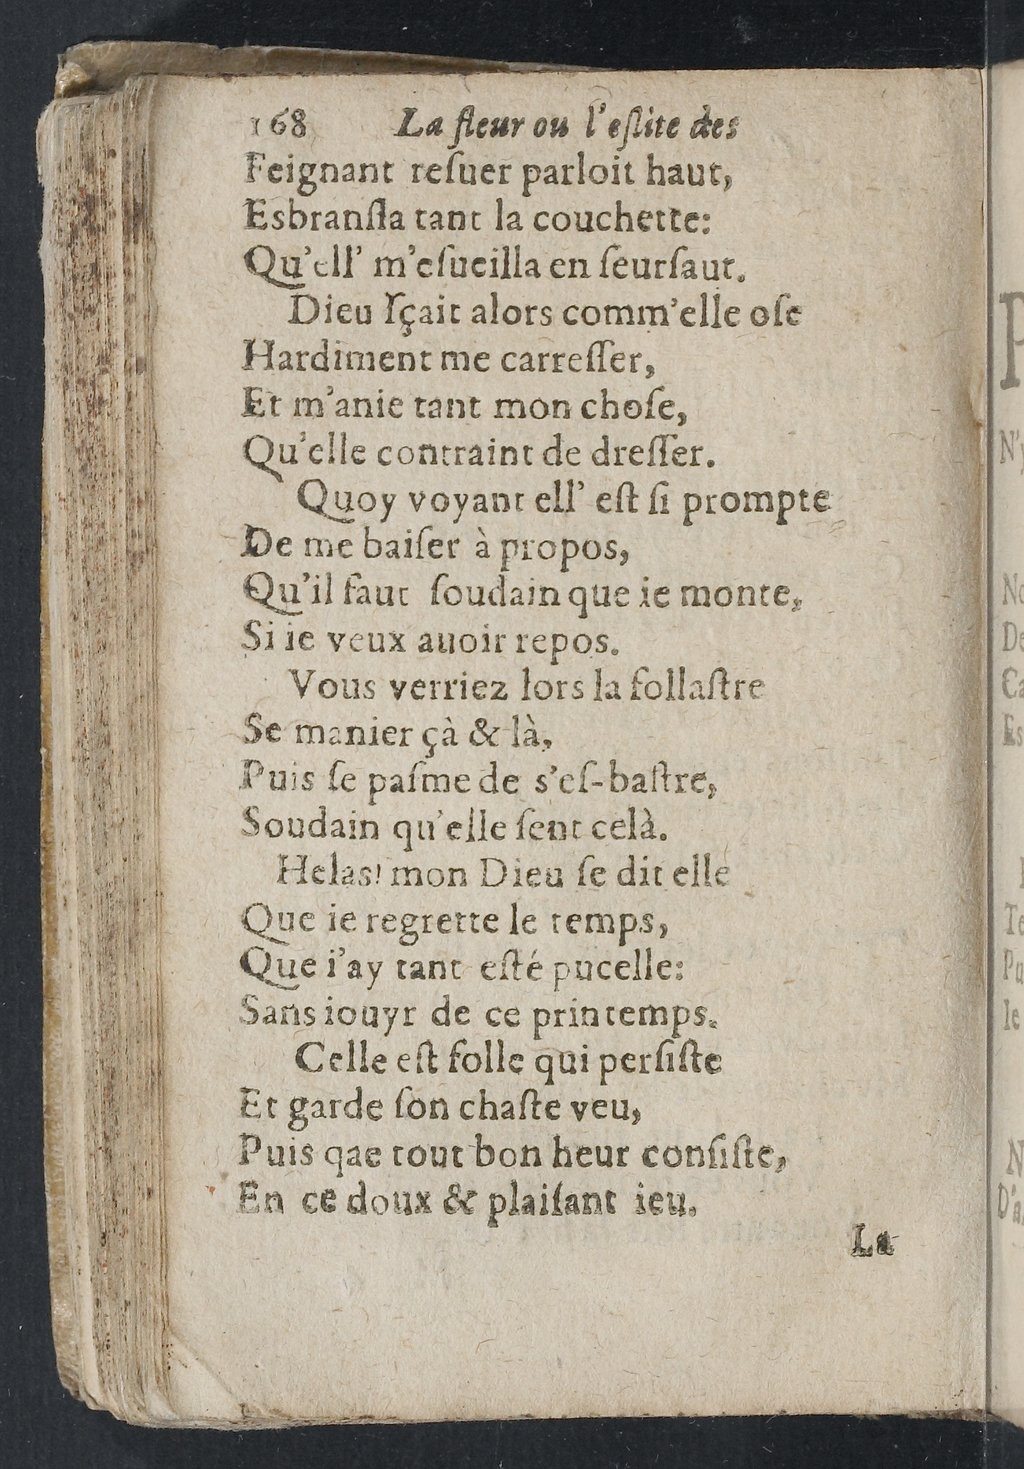 168 La fleur ou l'eſlite des
Feignant reſuer parloit haut,
Esbranſla tant la couchette:
Qu'ell' m'eſueilla en ſeurſaut.
Dieu ſçait alors comm'elle oſe
Hardiment me carreſſer,
Et m'anie tant mon choſe,
Qu'elle contraint de dreſſer.
Quoy voyant ell' eſt ſi prompte
De me baiſer à propos,
Qu'il faut ſoudain que ie monte,
Si ie veux auoir repos.
Vous verriez lors la follaſtre
Se manier çà & là,
Puis ſe paſme de s'eſ-baſtre,
Soudain qu'elle ſent celà.
Helas! mon Dieu ſe dit elle
Que ie regrette le temps,
Que i'ay tant eſté pucelle:
Sans iouyr de ce printemps.
Celle eſt folle qui perſiſte
Et garde ſon chaſte veu,
Puis qae tout bon heur conſiſte,
En ce doux & plaiſant ieu.
La